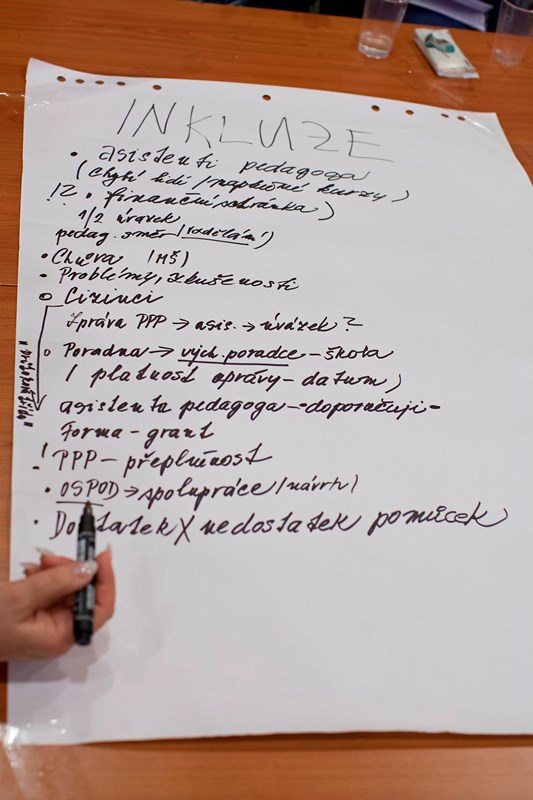 INKLUZE
• asistenti pedagoga
(chybí lidí / naplněné kurzy)
!? • finanční schránka)
1/2 úvazek
pedag. směr / vzdělání)
• Chůva (MŠ)
• Problémy, zkušenosti
○ Cizinci
Zpráva PPP → asis. → úvazek?
○ Poradna → vých. poradce – škola
( platnost zprávy – datum )
asistenta pedagoga – doporučuji –
Forma – grant
! PPP – přeplněnost
• OSPOD → spolupráce / návrh /
• Dostatek X nedostatek pomůcek